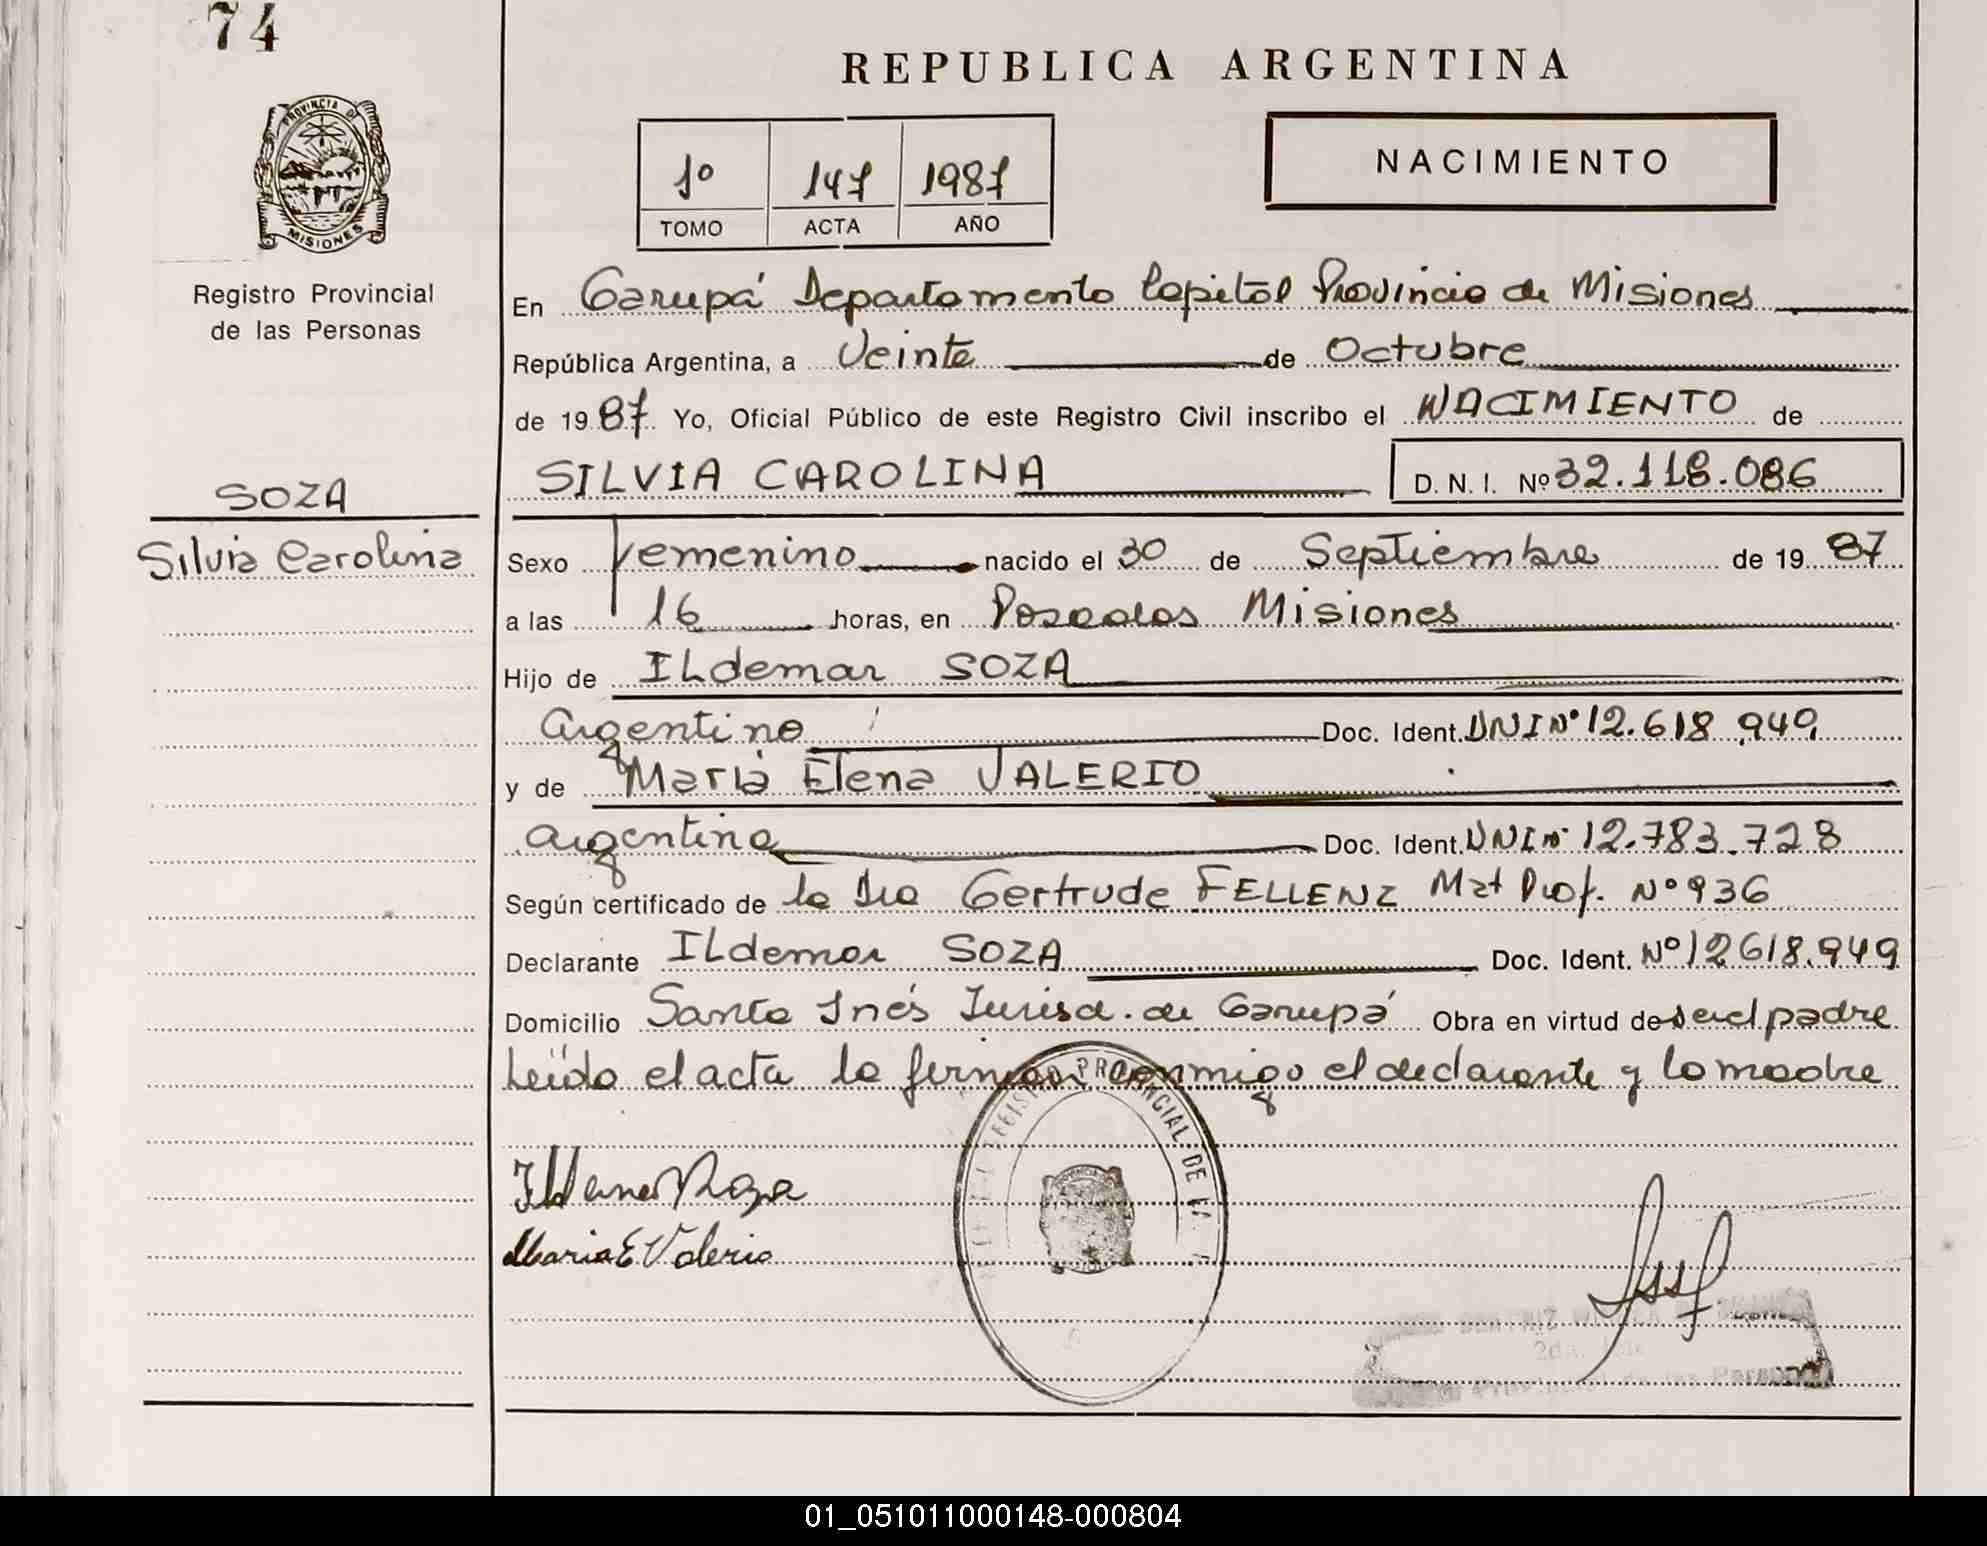 74
REPUBLICA ARGENTINA
PROVINCIA DE
MISIONES
1º 147 1987
TOMO ACTA AÑO
NACIMIENTO
Registro Provincial
de las Personas
En Garupá Departamento Capital Provincia de Misiones
República Argentina, a Veinte de Octubre
de 1987 Yo, Oficial Público de este Registro Civil inscribo el NACIMIENTO de
SILVIA CAROLINA D. N. I. Nº 32.118.086
SOZA
Silvia Carolina
Sexo Femenino nacido el 30 de Septiembre de 1987
a las 16 horas, en Posadas Misiones
Hijo de ILdemar SOZA
Argentino Doc. Ident. DNI Nº 12.618.949
y de Maria Elena VALERIO
Argentina Doc. Ident. DNI Nº 12.783.728
Según certificado de la Dra Gertrude FELLENZ Mat Prof. Nº 936
Declarante ILdemar SOZA Doc. Ident. Nº 12618.949
Domicilio Santa Inés Jurisd. de Garupá Obra en virtud de ser el padre
Leída el acta la firman conmigo el declarante y la madre
REGISTRO PROVINCIAL DE LA
Ildemar Soza
Maria E Valerio
2da.
01_051011000148-000804